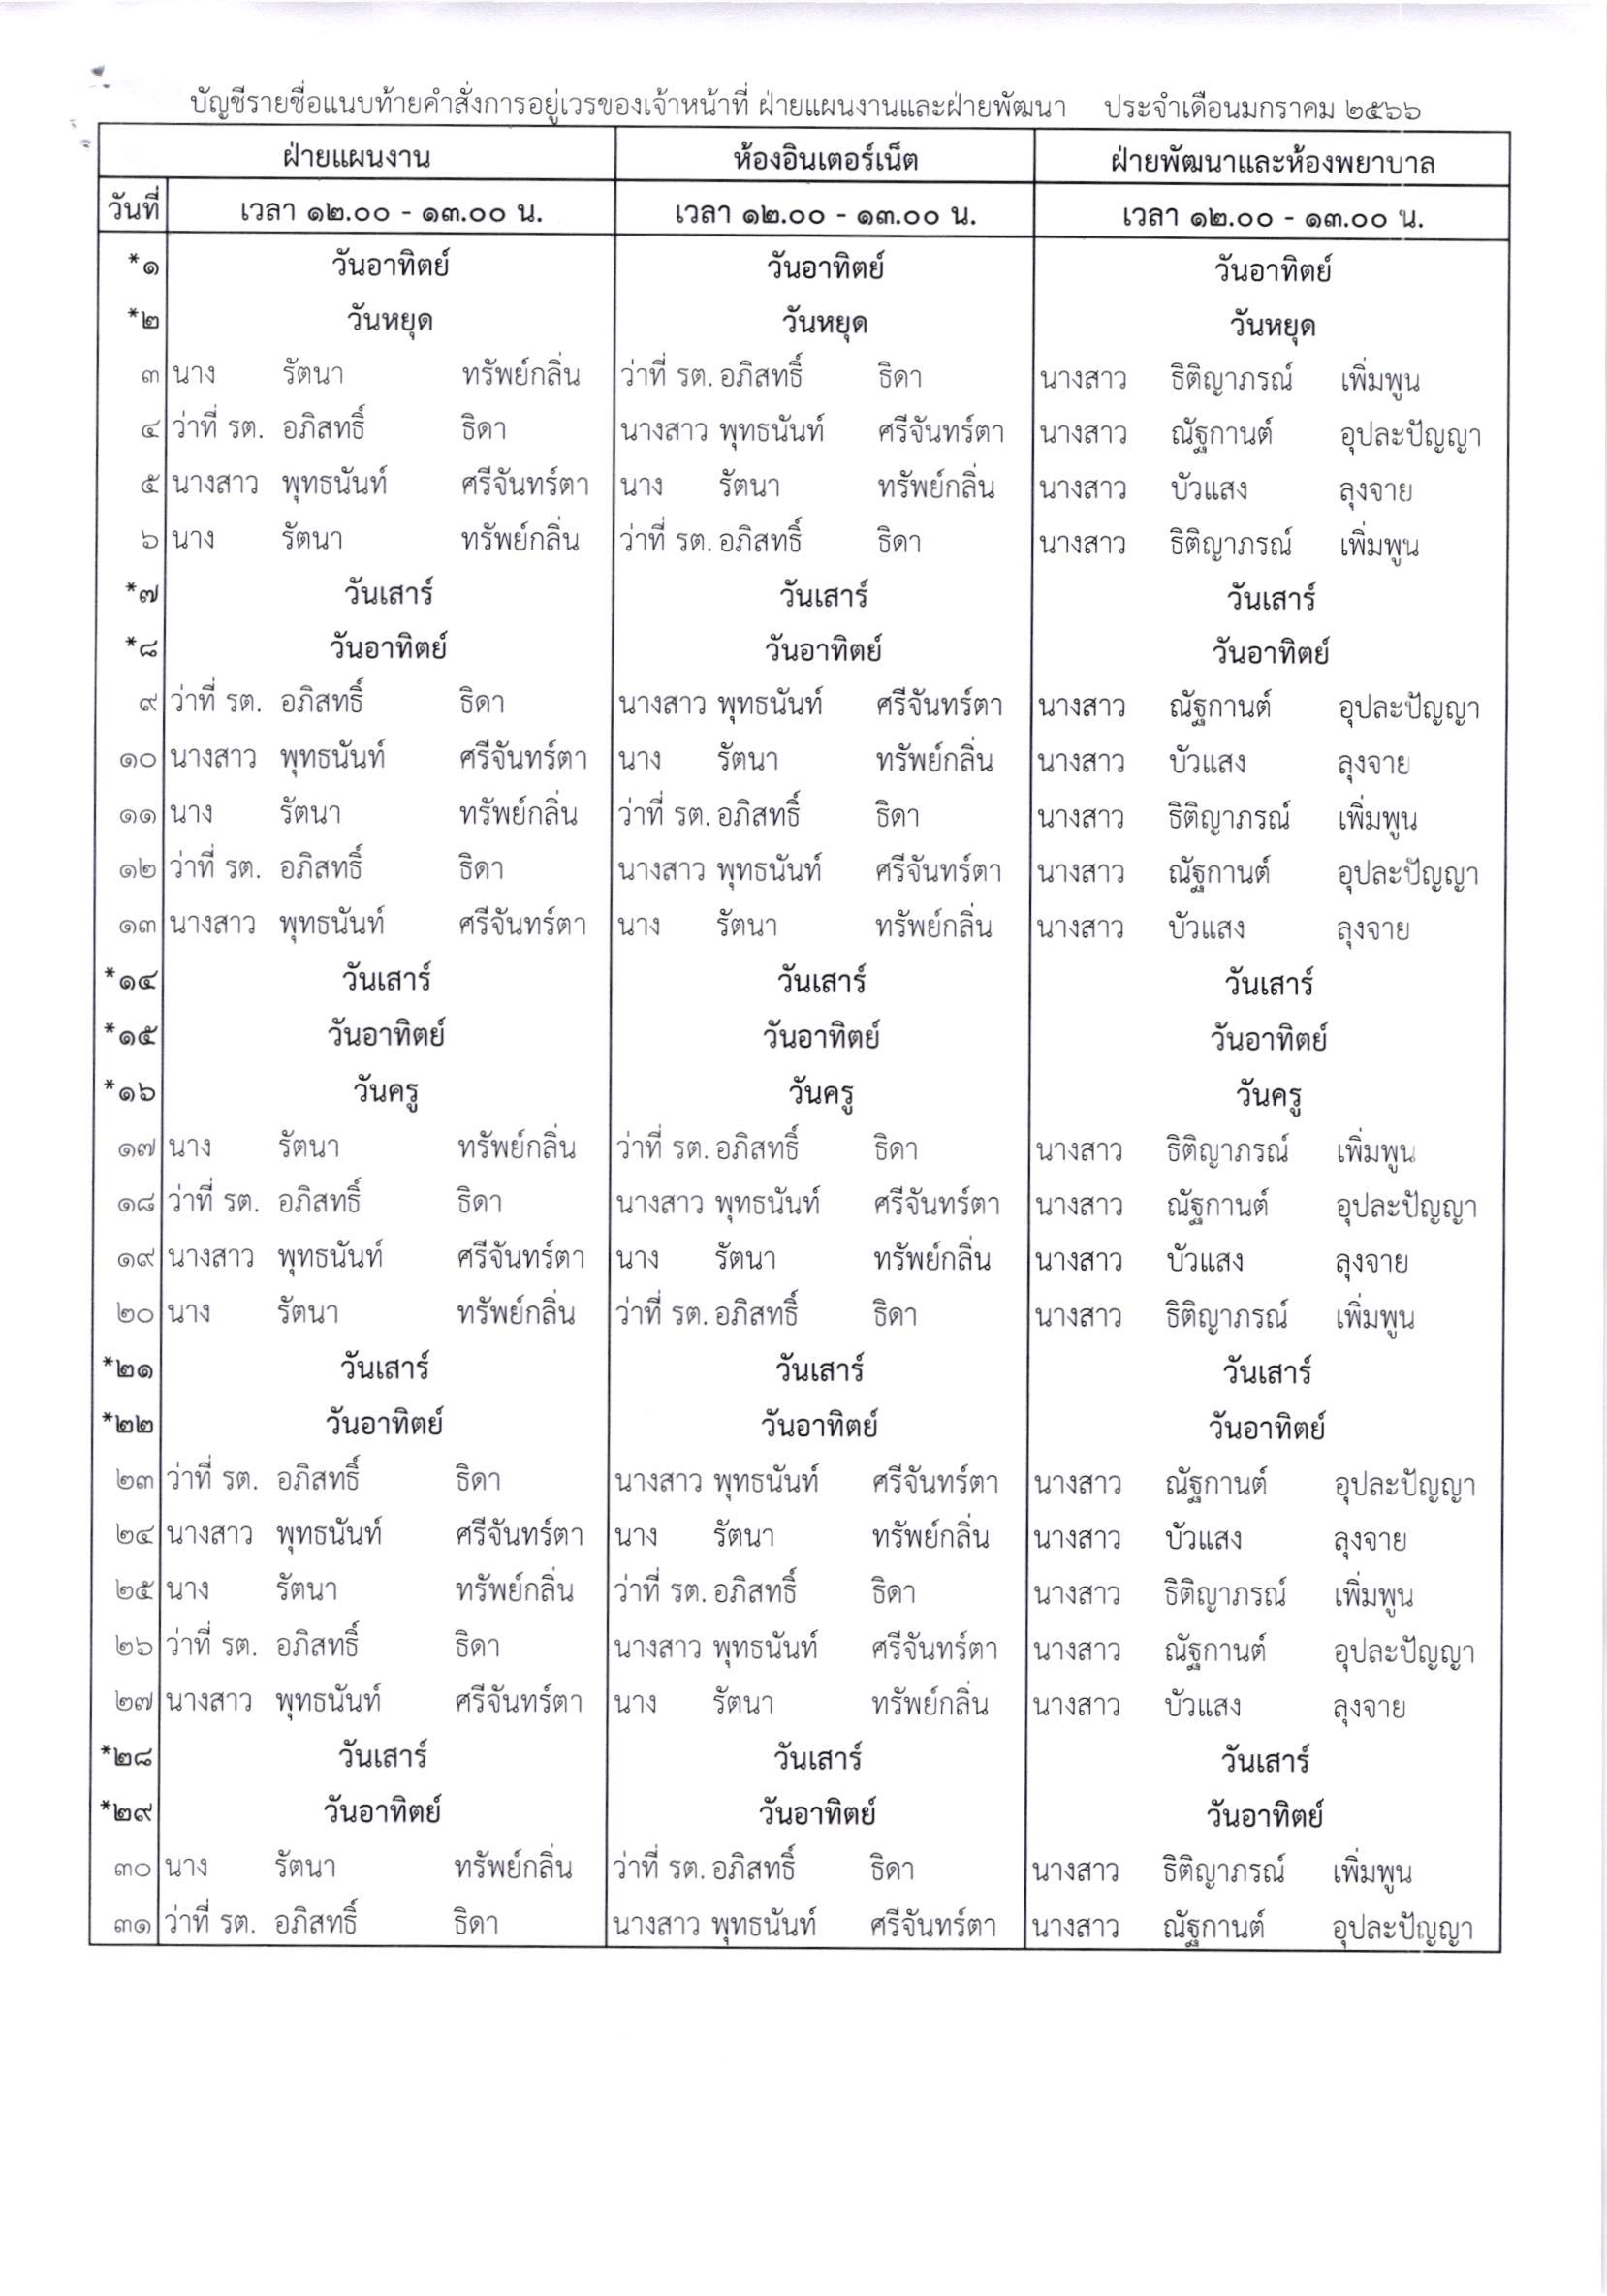 บัญชีรายชื่อแนบท้ายคำสั่งการอยู่เวรของเจ้าหน้าที่ ฝ่ายแผนงานและฝ่ายพัฒนา ประจำเดือนมกราคม ๒๕๖๖
ฝ่ายแผนงาน ห้องอินเตอร์เน็ต ฝ่ายพัฒนาและห้องพยาบาล
วันที่ เวลา ๑๒.๐๐ - ๑๓.๐๐ น. เวลา ๑๒.๐๐ - ๑๓.๐๐ น. เวลา ๑๒.๐๐ - ๑๓.๐๐ น.
*๑ วันอาทิตย์ วันอาทิตย์ วันอาทิตย์
*๒ วันหยุด วันหยุด วันหยุด
๓ นาง รัตนา ทรัพย์กลิ่น ว่าที่ รต. อภิสทธิ์ ธิดา นางสาว ธิติญาภรณ์ เพิ่มพูน
๔ ว่าที่ รต. อภิสทธิ์ ธิดา นางสาว พุทธนันท์ ศรีจันทร์ตา นางสาว ณัฐกานต์ อุปละปัญญา
๕ นางสาว พุทธนันท์ ศรีจันทร์ตา นาง รัตนา ทรัพย์กลิ่น นางสาว บัวแสง ลุงจาย
๖ นาง รัตนา ทรัพย์กลิ่น ว่าที่ รต. อภิสทธิ์ ธิดา นางสาว ธิติญาภรณ์ เพิ่มพูน
*๗ วันเสาร์ วันเสาร์ วันเสาร์
*๘ วันอาทิตย์ วันอาทิตย์ วันอาทิตย์
๙ ว่าที่ รต. อภิสทธิ์ ธิดา นางสาว พุทธนันท์ ศรีจันทร์ตา นางสาว ณัฐกานต์ อุปละปัญญา
๑๐ นางสาว พุทธนันท์ ศรีจันทร์ตา นาง รัตนา ทรัพย์กลิ่น นางสาว บัวแสง ลุงจาย
๑๑ นาง รัตนา ทรัพย์กลิ่น ว่าที่ รต. อภิสทธิ์ ธิดา นางสาว ธิติญาภรณ์ เพิ่มพูน
๑๒ ว่าที่ รต. อภิสทธิ์ ธิดา นางสาว พุทธนันท์ ศรีจันทร์ตา นางสาว ณัฐกานต์ อุปละปัญญา
๑๓ นางสาว พุทธนันท์ ศรีจันทร์ตา นาง รัตนา ทรัพย์กลิ่น นางสาว บัวแสง ลุงจาย
*๑๔ วันเสาร์ วันเสาร์ วันเสาร์
*๑๕ วันอาทิตย์ วันอาทิตย์ วันอาทิตย์
*๑๖ วันครู วันครู วันครู
๑๗ นาง รัตนา ทรัพย์กลิ่น ว่าที่ รต. อภิสทธิ์ ธิดา นางสาว ธิติญาภรณ์ เพิ่มพูน
๑๘ ว่าที่ รต. อภิสทธิ์ ธิดา นางสาว พุทธนันท์ ศรีจันทร์ตา นางสาว ณัฐกานต์ อุปละปัญญา
๑๙ นางสาว พุทธนันท์ ศรีจันทร์ตา นาง รัตนา ทรัพย์กลิ่น นางสาว บัวแสง ลุงจาย
๒๐ นาง รัตนา ทรัพย์กลิ่น ว่าที่ รต. อภิสทธิ์ ธิดา นางสาว ธิติญาภรณ์ เพิ่มพูน
*๒๑ วันเสาร์ วันเสาร์ วันเสาร์
*๒๒ วันอาทิตย์ วันอาทิตย์ วันอาทิตย์
๒๓ ว่าที่ รต. อภิสทธิ์ ธิดา นางสาว พุทธนันท์ ศรีจันทร์ตา นางสาว ณัฐกานต์ อุปละปัญญา
๒๔ นางสาว พุทธนันท์ ศรีจันทร์ตา นาง รัตนา ทรัพย์กลิ่น นางสาว บัวแสง ลุงจาย
๒๕ นาง รัตนา ทรัพย์กลิ่น ว่าที่ รต. อภิสทธิ์ ธิดา นางสาว ธิติญาภรณ์ เพิ่มพูน
๒๖ ว่าที่ รต. อภิสทธิ์ ธิดา นางสาว พุทธนันท์ ศรีจันทร์ตา นางสาว ณัฐกานต์ อุปละปัญญา
๒๗ นางสาว พุทธนันท์ ศรีจันทร์ตา นาง รัตนา ทรัพย์กลิ่น นางสาว บัวแสง ลุงจาย
*๒๘ วันเสาร์ วันเสาร์ วันเสาร์
*๒๙ วันอาทิตย์ วันอาทิตย์ วันอาทิตย์
๓๐ นาง รัตนา ทรัพย์กลิ่น ว่าที่ รต. อภิสทธิ์ ธิดา นางสาว ธิติญาภรณ์ เพิ่มพูน
๓๑ ว่าที่ รต. อภิสทธิ์ ธิดา นางสาว พุทธนันท์ ศรีจันทร์ตา นางสาว ณัฐกานต์ อุปละปัญญา